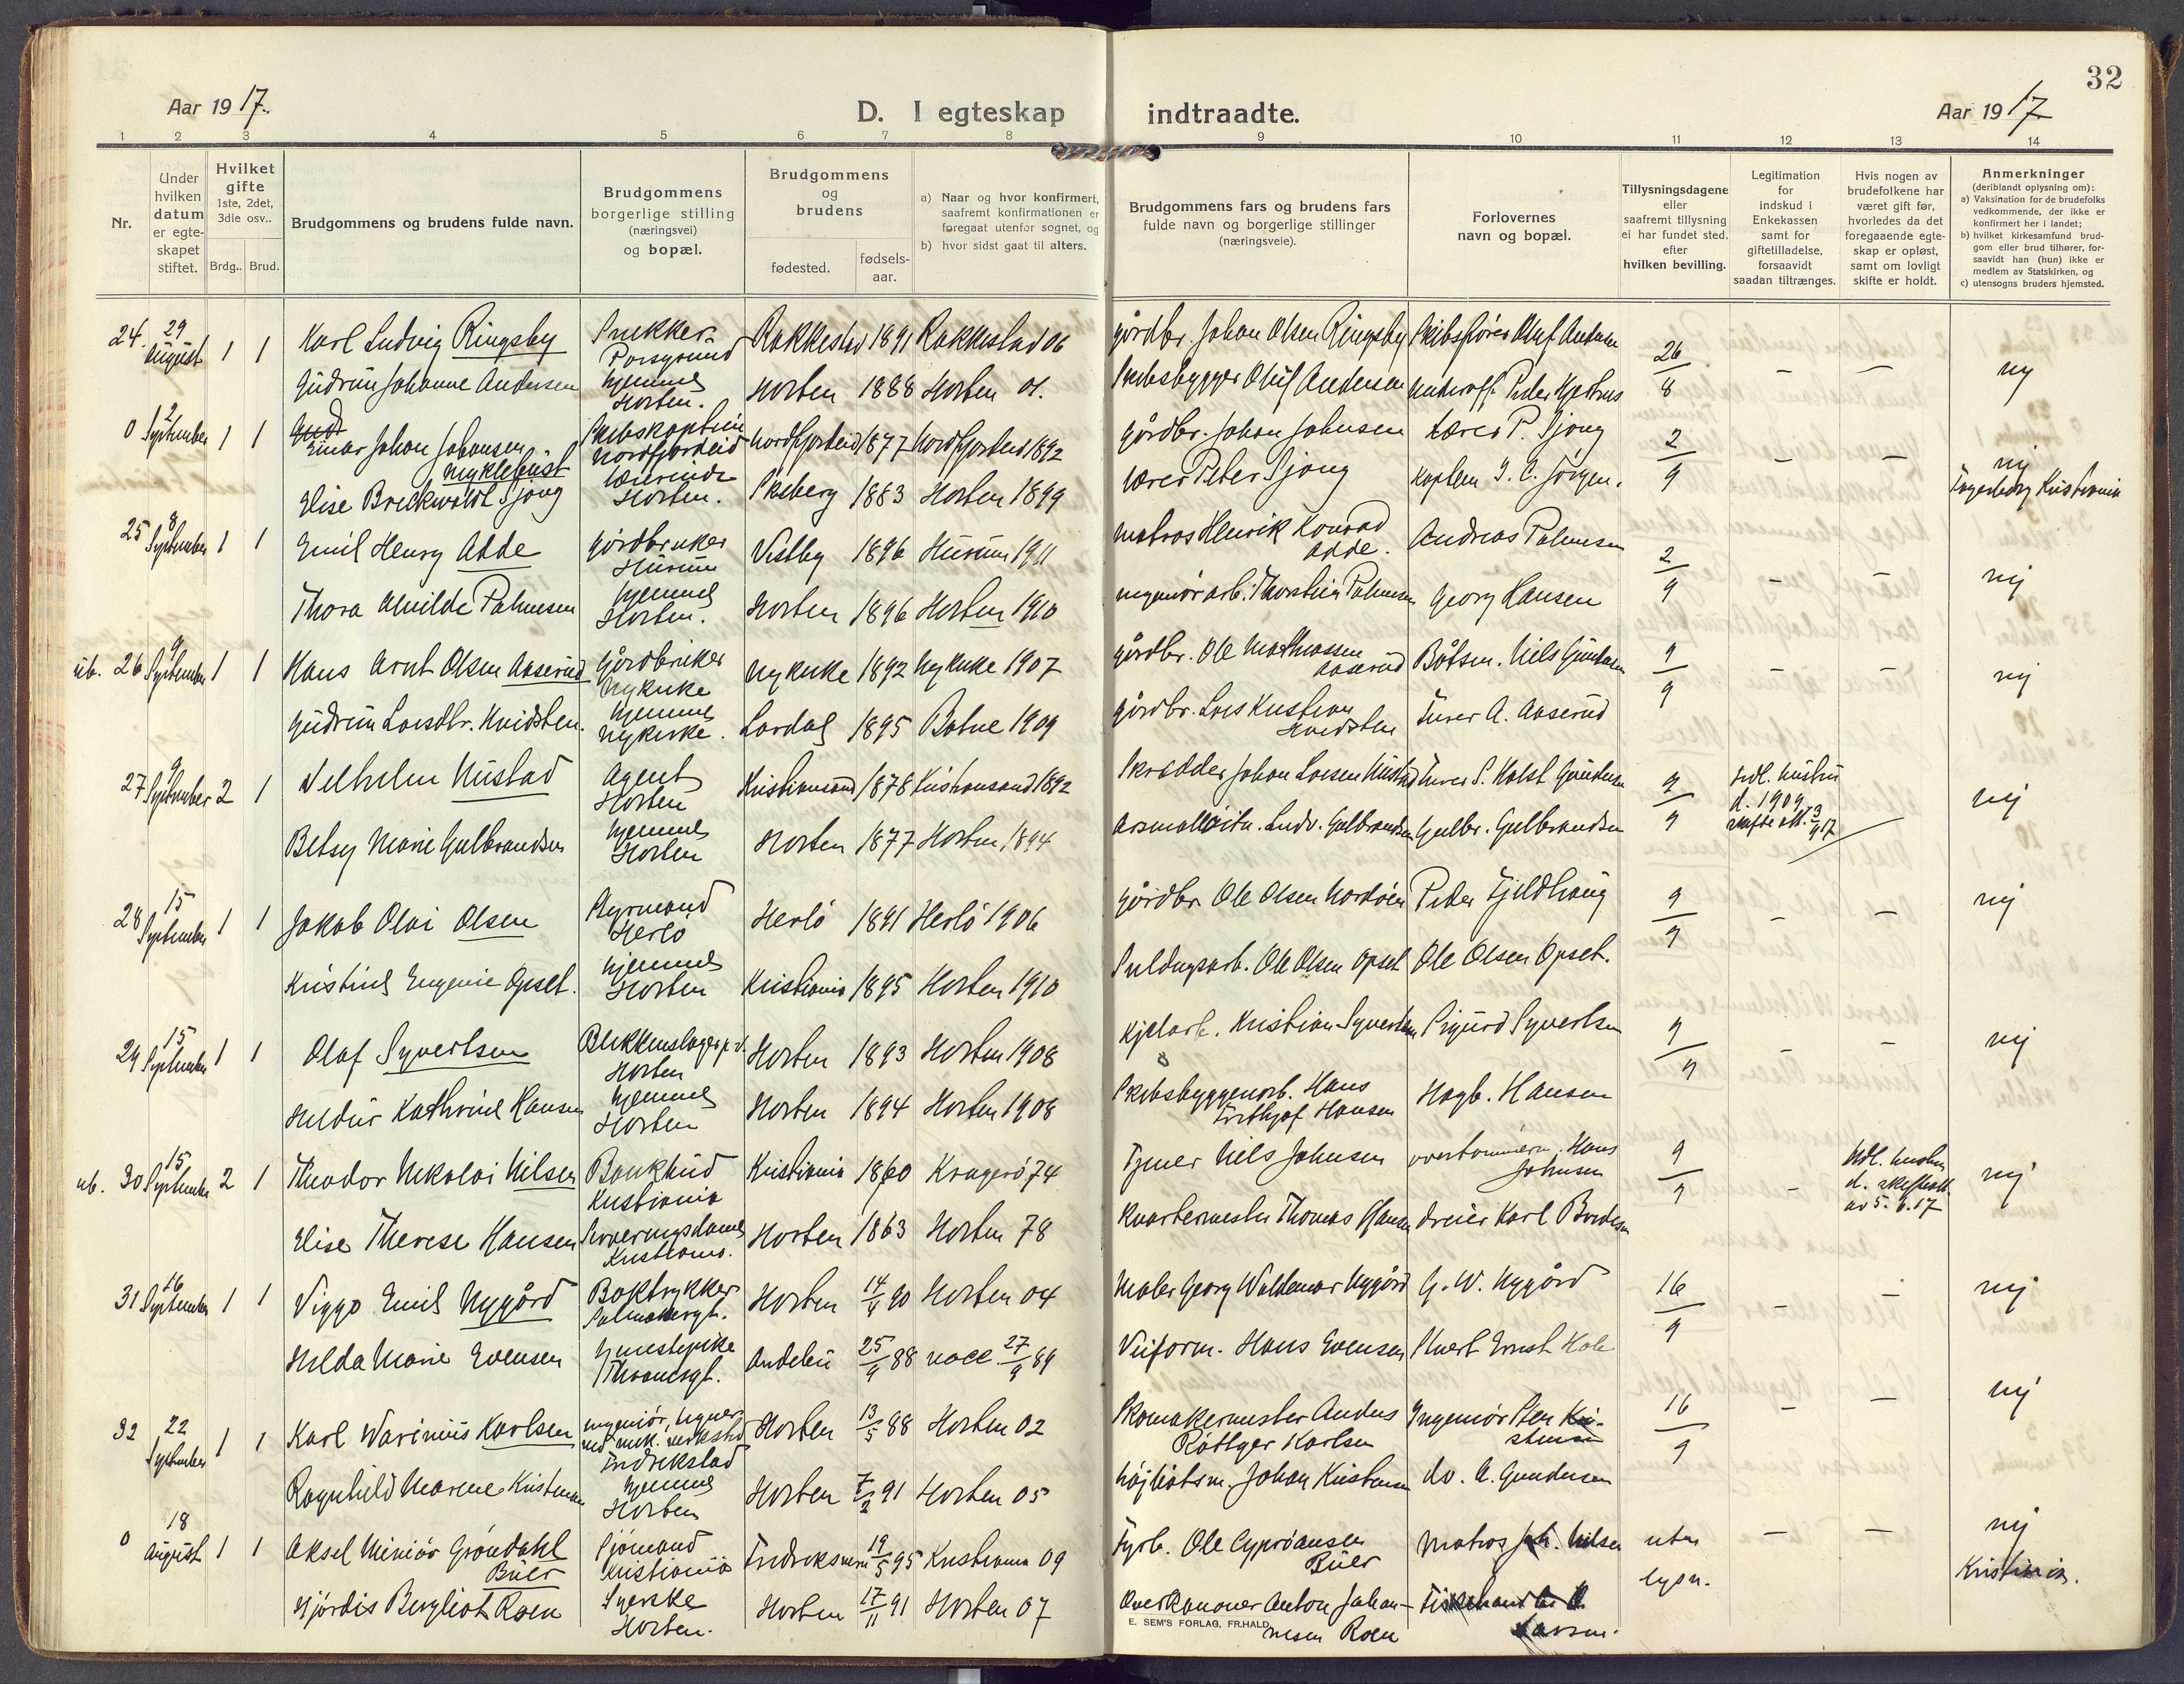 32
Aar 1917.
D. I egteskap indtraadte.
Aar 1917
1 2 3 4 5 6 7 8 9 10 11 12 13 14
Nr.
Under hvilken datum er egte- skapet stiftet.
Hvilket gifte 1ste, 2det, 3die osv..
Brdg.. Brud.
Brudgommens og brudens fulde navn.
Brudgommens borgerlige stilling (næringsvei) og bopæl.
Brudgommens og brudens
fødested.
fødsels- aar.
a) Naar og hvor konfirmert, saafremt konfirmationen er foregaat utenfor sognet, og
b) hvor sidst gaat til alters.
Brudgommens fars og brudens fars fulde navn og borgerlige stillinger (næringsveie).
Forlovernes navn og bopæl.
Tillysningsdagene eller saafremt tillysning ei har fundet sted, efter hvilken bevilling.
Legitimation for indskud i Enkekassen samt for giftetilladelse, forsaavidt saadan tiltrænges.
Hvis nogen av brudefolkene har været gift før, hvorledes da det foregaaende egte- skap er opløst, samt om lovligt skifte er holdt.
Anmerkninger (deriblandt oplysning om):
a) Vaksination for de brudefolks vedkommende, der ikke er konfirmert her i landet;
b) hvilket kirkesamfund brud- gom eller brud tilhører, for- saavidt han (hun) ikke er medlem av Statskirken, og
c) utensogns bruders hjemsted.
24. 29 August 1 1 Karl Ludvig Ringsby Snekker Porsgrund Rakkestad 1891 Rakkestad 06 gårdbr. Johan Olsen Ringsby Skibsfører Oluf Andersen 26/8 – – nej
Gudrun Johanne Andersen hjemme Horten. Horten 1888 Horten 01. Skibsbygger Oluf Andersen Underoff. Peder
0 2 September 1 1 Einar Johan Johansen Myklebust Skibskaptein Nordfjordeid Nordfjordeid 1877 Nordfjordeid 1892 gårdbr. Johan Johnsen Lærer P. Sjong 2/9 – – nej
Elise Breckwoldt Sjong lærerinde Horten. Skeberg 1883 Horten 1899 lærer Peter Sjong Kaptein J. C. Jörgen. Fagerborg Kristiania
25 8 September 1 1 Emil Henry Adde gårdbruker Hurum Vestby 1896 Hurum 1911 matros Henrik Konrad Adde. Andreas Palmesen 2/9 – – nej
Thora Alvilde Palmesen hjemme Horten. Horten 1896 Horten 1910 Thorstein Palmesen Georg Hansen
ub. 26 9 September 1 1 Hans Arnt Olsen Aaserud Gårdbruker Nykirke Nykirke 1892 Nykirke 1907 gårdbr. Ole Mathiassen Aaserud Båtsm. Nils Gundersen 9/9 – – nej
Gudrun Larsdtr. Hvidsten. hjemme Nykirke. Lardal 1895 Botne 1909 gårdbr. Lars Kristian Hvidsten Furer A. Aaserud
27 9 September 2 1 Vilhelm Hustad Agent Horten Kristiansund 1878 Kristiansund 1892 Skrædder Johan Larsen Hustad Furer S. Holst Gundersen 9/9 Frdl. hustru d. 1909 skifte att. 3/9 17 nej
Betsy Marie Gulbrandsen hjemme Horten Horten 1877 Horten 1894 Ludv. Gulbrandsen Gulbr. Gulbrandsen
28 15 September 1 1 Jakob Olai Olsen Styrmand Herlö Herlö 1891 Herlö 1906 gårdbr. Ole Olsen Nordöen Peder Fjeldhaug 9/9 – – nej
Kristine Eugenie Opset. hjemme Horten Kristiania 1895 Horten 1910 Ole Olsen Opset Ole Olsen Opset.
29 15 September 1 1 Olaf Syvertsen Blikkenslager Horten Horten 1893 Horten 1908 Kjelarb. Kristian Syvertsen Sigurd Syvertsen 9/9 – – nej
Hildur Kathrine Hansen hjemme Horten Horten 1894 Horten 1908 Skibsbyggerarb. Hans Frithjof Hansen Hagb. Hansen
ub. 30 15 September 2 1 Theodor Nikolai Nilsen Bankbud Kristiania Kristiania 1860 Kragerö 74 Nils Johnsen Hans Johnsen 9/9 – frdl. hustru d. skifteatt. av 5.6.17 nej
Elise Therese Hansen Serveringsdame Kristiania. Horten 1863 Horten 78 Kvartermester Thomas Hansen dreier Karl
31 16 September 1 1 Viggo Emil Nygård Boktrykker Horten 14/4 90 Horten 04 Maler Georg Waldemar Nygård G. W. Nygård 16/9 – – nej
Hilda Marie Evensen Tjenestepike Andebu 25/9 88 vacc 27/9 89 Hans Evensen
32 22 September 1 1 Karl Warinius Karlsen ingeniör, mek. verksted Fredrikstad Horten 13/5 88 Horten 02 Skomakermester Anders Röttger Karlsen Ingeniör Sten Kristensen 16/9 – – nej
Ragnhild Marene Kristensen hjemme Horten Horten 7/2 91 Horten 05 Johan Kristensen do. A. Gundersen
0 18 August 1 1 Aksel Miniör Gröndahl Buer Sjömand Kristiania Fredriksværn 19/5 95 Kristiania 09 Fyrb. Ole Cypriansen Buer Matros Joh. Nilsen uten lysn. – – nej
Hjördis Bergliot Roen Syerske Horten. Horten 17/11 91 Horten 07 Overkanoner Anton Johannesen Roen Larsen. Kristiania.
E. SEM'S FORLAG, FR.HALD